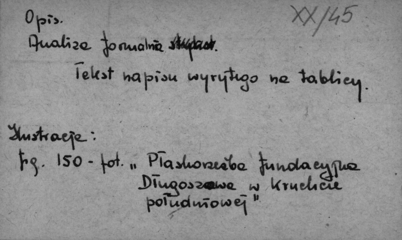 XX/45
Opis.
Analiza formalna
Tekst napisu wyrytego na tablicy.
Ilustracje:
fig. 150 - fot. „Płaskorzeźba fundacyjna
Długoszowa w Kruchcie
południowej"